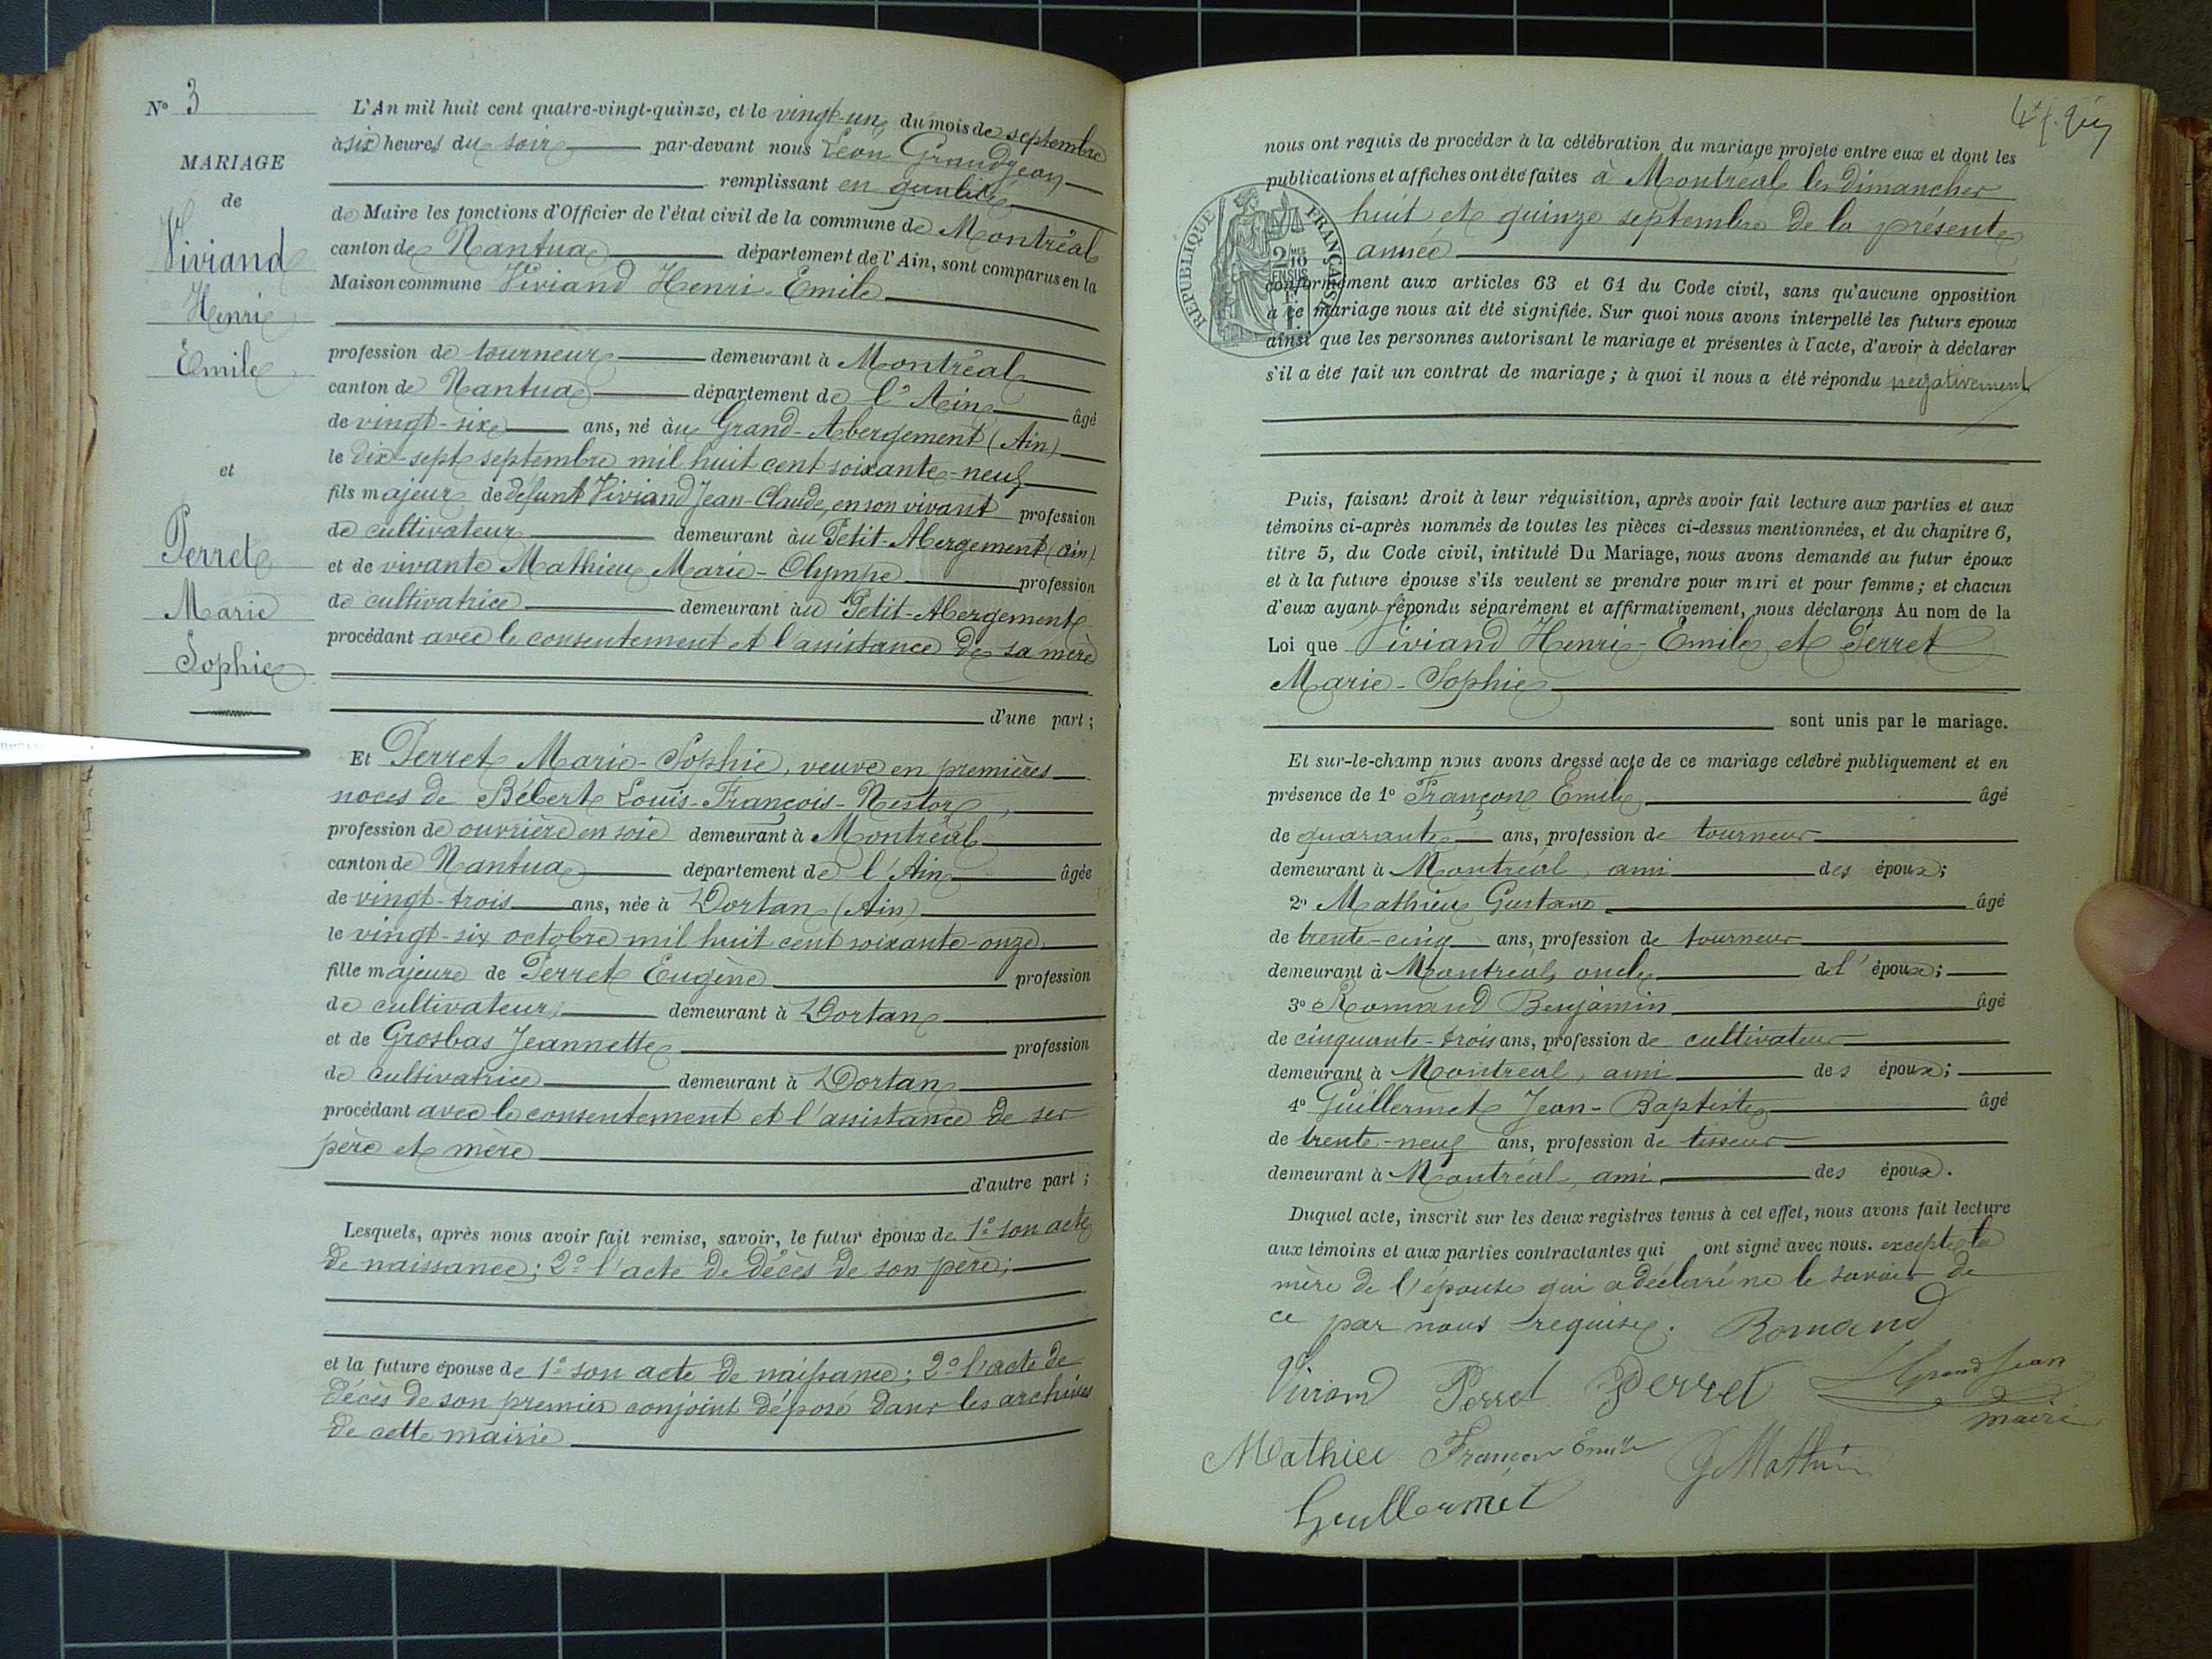 N° 3
MARIAGE
de
Viviand
Henri
Emile
et
Perret
Marie
Sophie
L'An mil huit cent quatre-vingt-quinze, et le vingt-un du mois de septembre
à six heures du soir par-devant nous Léon Grandjean
remplissant en qualité
de Maire les fonctions d'Officier de l'état civil de la commune de Montréal
canton de Nantua département de l'Ain, sont comparus en la
Maison commune Viviand Henri-Emile
profession de tourneur demeurant à Montréal
canton de Nantua département de l'Ain âgé
de vingt-six ans, né au Grand-Abergement (Ain)
le dix-sept septembre mil huit cent soixante-neuf
fils majeur de défunt Viviand Jean-Claude, en son vivant profession
de cultivateur demeurant au Petit-Abergement (Ain)
et de vivante Mathieu Marie-Olympe profession
de cultivatrice demeurant au Petit-Abergement
procédant avec le consentement et l'assistance de sa mère
d'une part;
Et Perret Marie-Sophie, veuve en premières
noces de Bébert Louis-François-Nestor,
profession de ouvrière en soie demeurant à Montréal
canton de Nantua département de l'Ain âgée
de vingt-trois ans, née à Dortan (Ain)
le vingt-six octobre mil huit cent soixante-onze
fille majeure de Perret Eugène profession
de cultivateur demeurant à Dortan
et de Grosbas Jeannette profession
de cultivatrice demeurant à Dortan
procédant avec le consentement et l'assistance de ses
père et mère
d'autre part;
Lesquels, après nous avoir fait remise, savoir, le futur époux de 1° son acte
de naissance; 2° l'acte de décès de son père;
et la future épouse de 1° son acte de naissance; 2° l'acte de
décès de son premier conjoint déposé dans les archives
de cette mairie
nous ont requis de procéder à la célébration du mariage projeté entre eux et dont les
publications et affiches ont été faites à Montréal les dimanches
huit et quinze septembre de la présente
année
RÉPUBLIQUE FRANÇAISE
2/10 EN SUS
conformément aux articles 63 et 64 du Code civil, sans qu'aucune opposition
à ce mariage nous ait été signifiée. Sur quoi nous avons interpellé les futurs époux
ainsi que les personnes autorisant le mariage et présentes à l'acte, d'avoir à déclarer
s'il a été fait un contrat de mariage; à quoi il nous a été répondu négativement
Puis, faisant droit à leur réquisition, après avoir fait lecture aux parties et aux
témoins ci-après nommés de toutes les pièces ci-dessus mentionnées, et du chapitre 6,
titre 5, du Code civil, intitulé Du Mariage, nous avons demandé au futur époux
et à la future épouse s'ils veulent se prendre pour mari et pour femme; et chacun
d'eux ayant répondu séparément et affirmativement, nous déclarons Au nom de la
Loi que Viviand Henri-Emile et Perret
Marie-Sophie
sont unis par le mariage.
Et sur-le-champ nous avons dressé acte de ce mariage célébré publiquement et en
présence de 1° Françon Emile âgé
de quarante ans, profession de tourneur
demeurant à Montréal, ami des époux;
2° Mathieu Gustave âgé
de trente-cinq ans, profession de tourneur
demeurant à Montréal, oncle de l'époux;
3° Romand Benjamin âgé
de cinquante-trois ans, profession de cultivateur
demeurant à Montréal, ami des époux;
4° Guillermet Jean-Baptiste âgé
de trente-neuf ans, profession de tisseur
demeurant à Montréal, ami des époux.
Duquel acte, inscrit sur les deux registres tenus à cet effet, nous avons fait lecture
aux témoins et aux parties contractantes qui ont signé avec nous. excepté la
mère de l'épouse qui a déclaré ne le savoir de
ce par nous requise. Romand
Viviand Perret Perret L Grandjean
maire
Mathieu Françon Emile G Mathieu
Guillermet